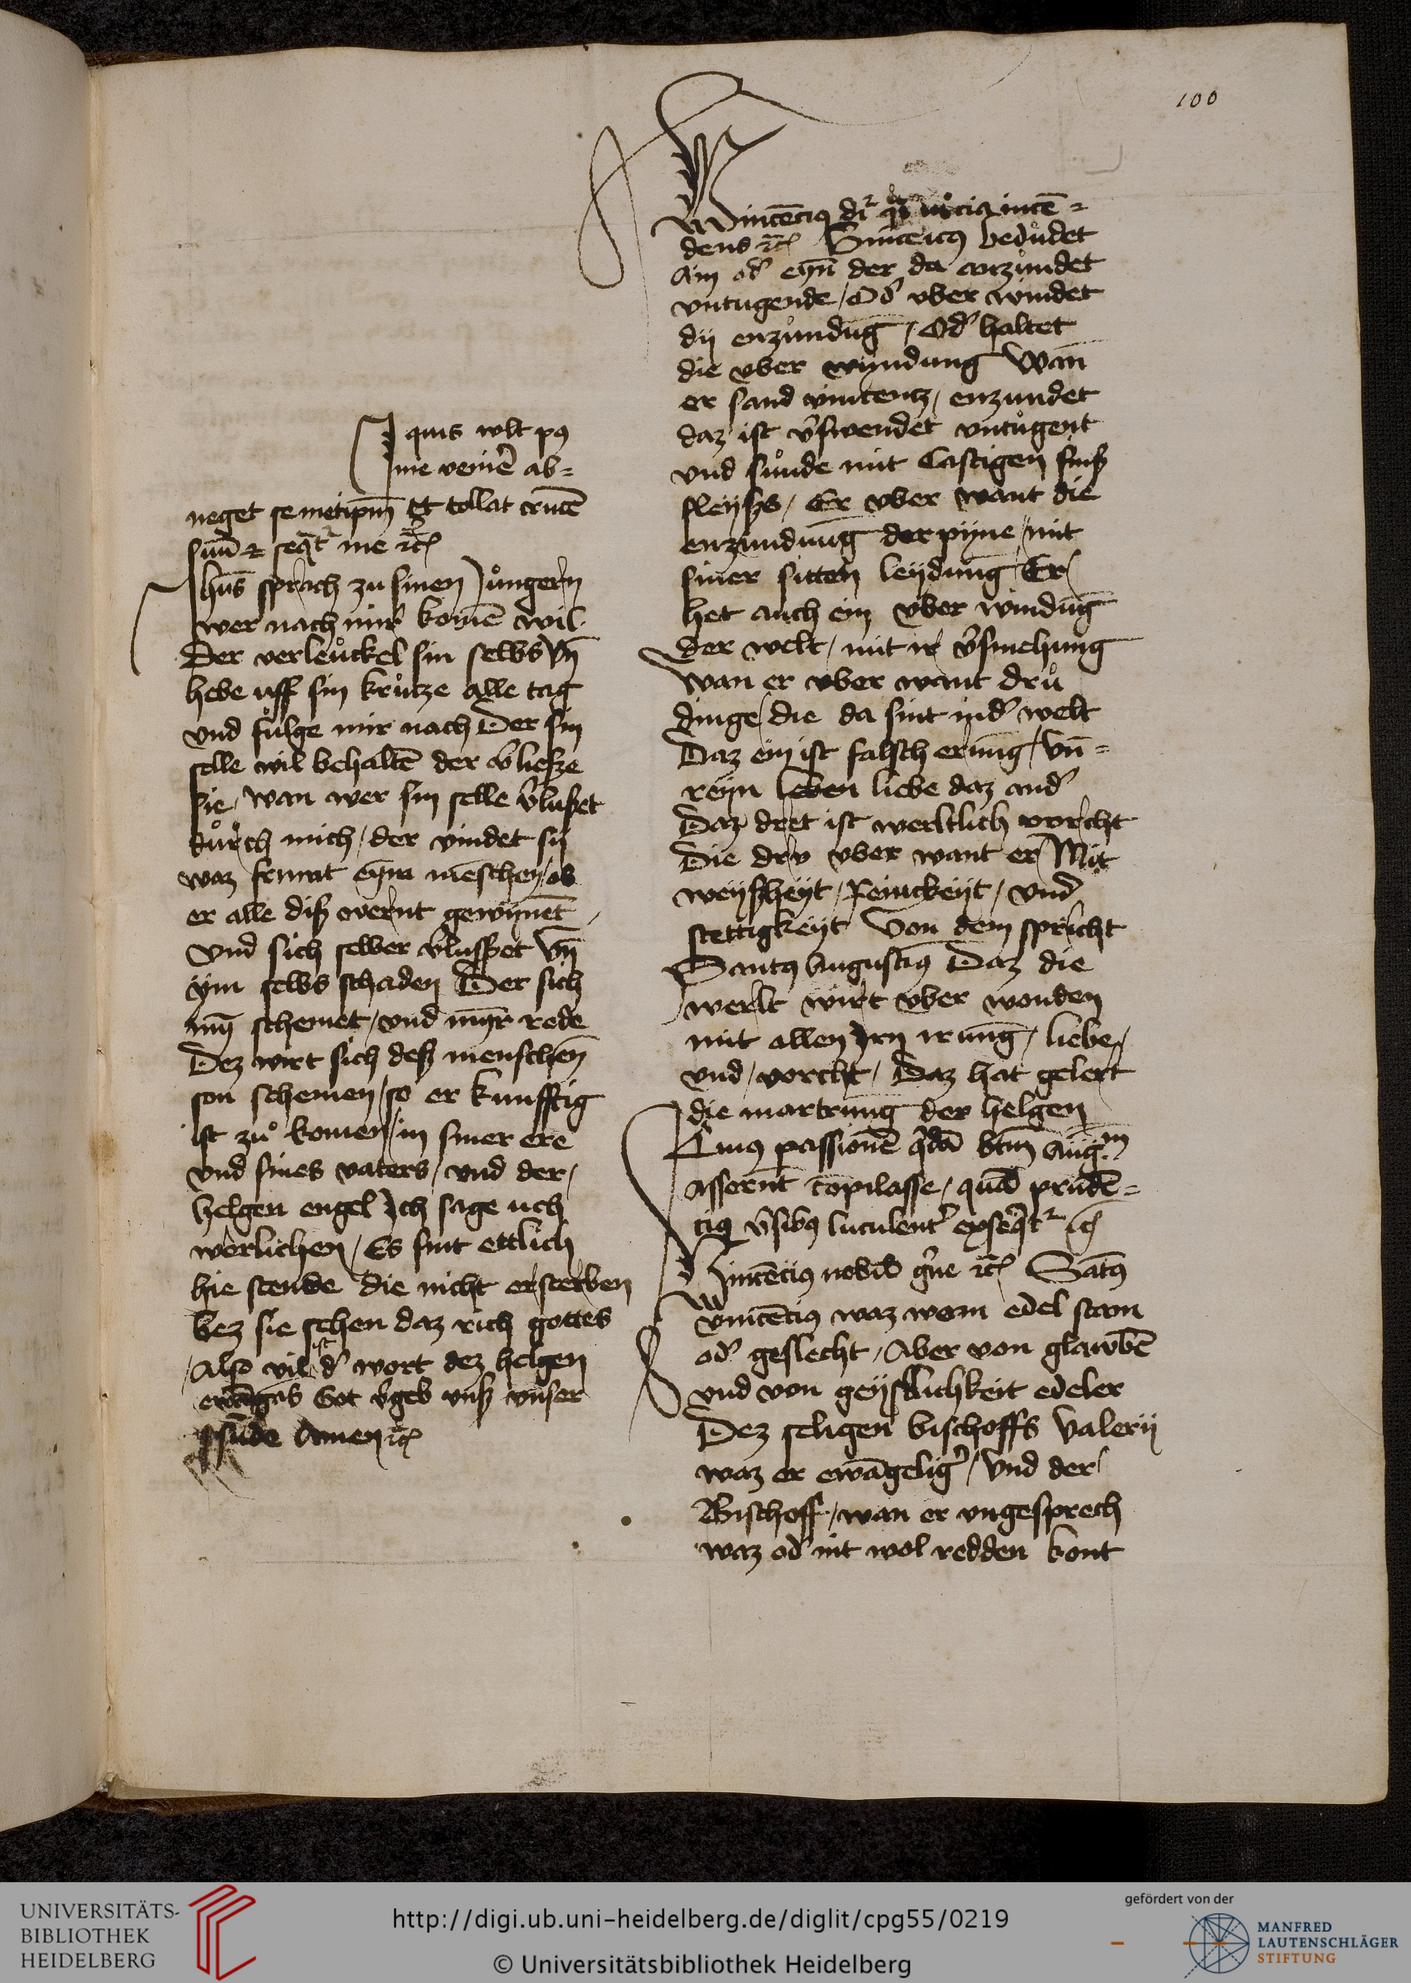 100
I quis wlt pꝰ
me veniē ab⸗
neget semetipm̄ Et tollat crucē
suā ⁊ seqt᷑ me ⁊c̄
Ihūs sprach zu sinen Jůngern
wer nach mir komē wil
Der verleůckel sin selbs vn̄
hebe uff sin krůtze alle tag
vnd fulge mir nach Der sin
selle wil behaltē der v̓liesze
sie / wan wer sin selle v̓luset
důrch mich / der vindet sij
waz frumt eym mēschen / ob
er alle disz wernt gewynnet
Vnd sich selber v̓lusset vn̄
ym selbs schaden Der sich
myn schemet / vnd myner rede
Dez wirt sich desz menschen
son schemen / so er kunfftig
ist zů komen / in siner ere
vnd sines vaters / vnd der /
helgen engel Ich sage uch
werlichen / Es sint ettlich
hie stende die nicht ersterben
bez sie sehen daz rich gottes
Also vil ist d̓ wort dez helgen
ewāgūs Got v̓geb vnsz vnser
sūde Amen ⁊c̄
Wincēciꝰ dr᷑ incē⸗
dens ⁊c̄ Vincēciꝰ bedůdet
Ain od̓ eyn̄ der da enzůndet
vntugende / Od̓ vber windet
dij enzůndūg / Od̓ haltet
die vber wyndung Wan̄
er sand vincentz / enzundet
daz ist v̓swendet vntůgent
vnd sůnde mit Castigen sinsz
fleyschs / Er vber want die
enzundung der pyne / mit
siner sitten leydūng Er /
het auch ein vber windūg
der welt / mit ir v̓smehung
Wan er vber want drů
dinge / die da sint in d̓ welt
Daz ein ist falsch erūng / Vn̄⸗
reyn leben liebe daz and̓
Daz dret ist werltlich vorcht
Die dry vber want er / Mit
weyszheyt / Reinickeyt / Vnd
stettigkeyt Von dem spricht
Santꝰ Augustinꝰ Daz die
werlt wirt vber wonden
mit allen Irn irung / liebe /
vnd / vorcht / Daz hat gelert
die martrung der helgen
Cuiꝰ passionē q̓dā btm̄ Aug̓m
asserūt cōpilasse / quā prudē⸗
ciꝰ v̓sibꝰ luculent̓ exseqt᷑ ⁊c̄
Vincēciꝰ nobił gn̓e ⁊c̄ Sātꝰ
vincēciꝰ waz wom edel stam
od̓ geslecht / Aber von glawbē
vnd von geystlichkeit edeler
Dez seligen bischoffs Valerij
waz er ewāgelig̓ / Vnd der /
Bischoff / wan er vngesprech
waz od̓ nit wol redden kont
UNIVERSITÄTS-
BIBLIOTHEK
HEIDELBERG
http://digi.ub.uni-heidelberg.de/diglit/cpg55/0219
© Universitätsbibliothek Heidelberg
gefördert von der
MANFRED
LAUTENSCHLÄGER
STIFTUNG